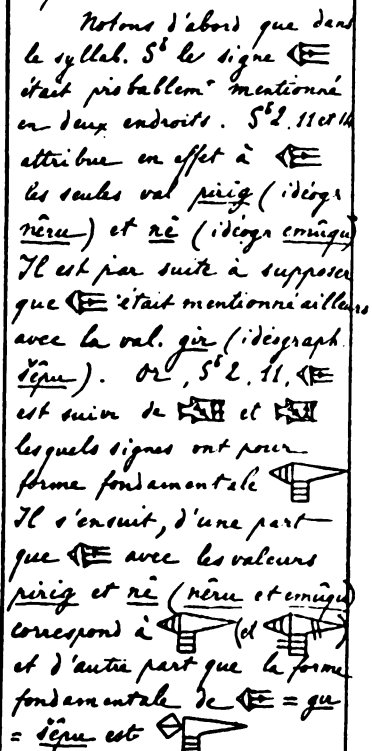 Notons d'abord que dans
le syllab. Sᵇ le signe
était probablemᵗ mentionné
en deux endroits. Sᵇ 2, 11 et 14
attribue en effet à
les seules val pirig (idéogr
nêru) et nê (idéogr emûqu)
Il est par suite à supposer
que était mentionné ailleurs
avec la val. gir (idéograph.
šêpu). Or, Sᵇ 2, 11,
est suivi de et
lesquels signes ont pour
forme fondamentale
Il s'ensuit, d'une part
que avec les valeurs
pirig et nê (nêru et emûqu)
correspond à (et )
et d'autre part que la forme
fondamentale de =
= šêpu est